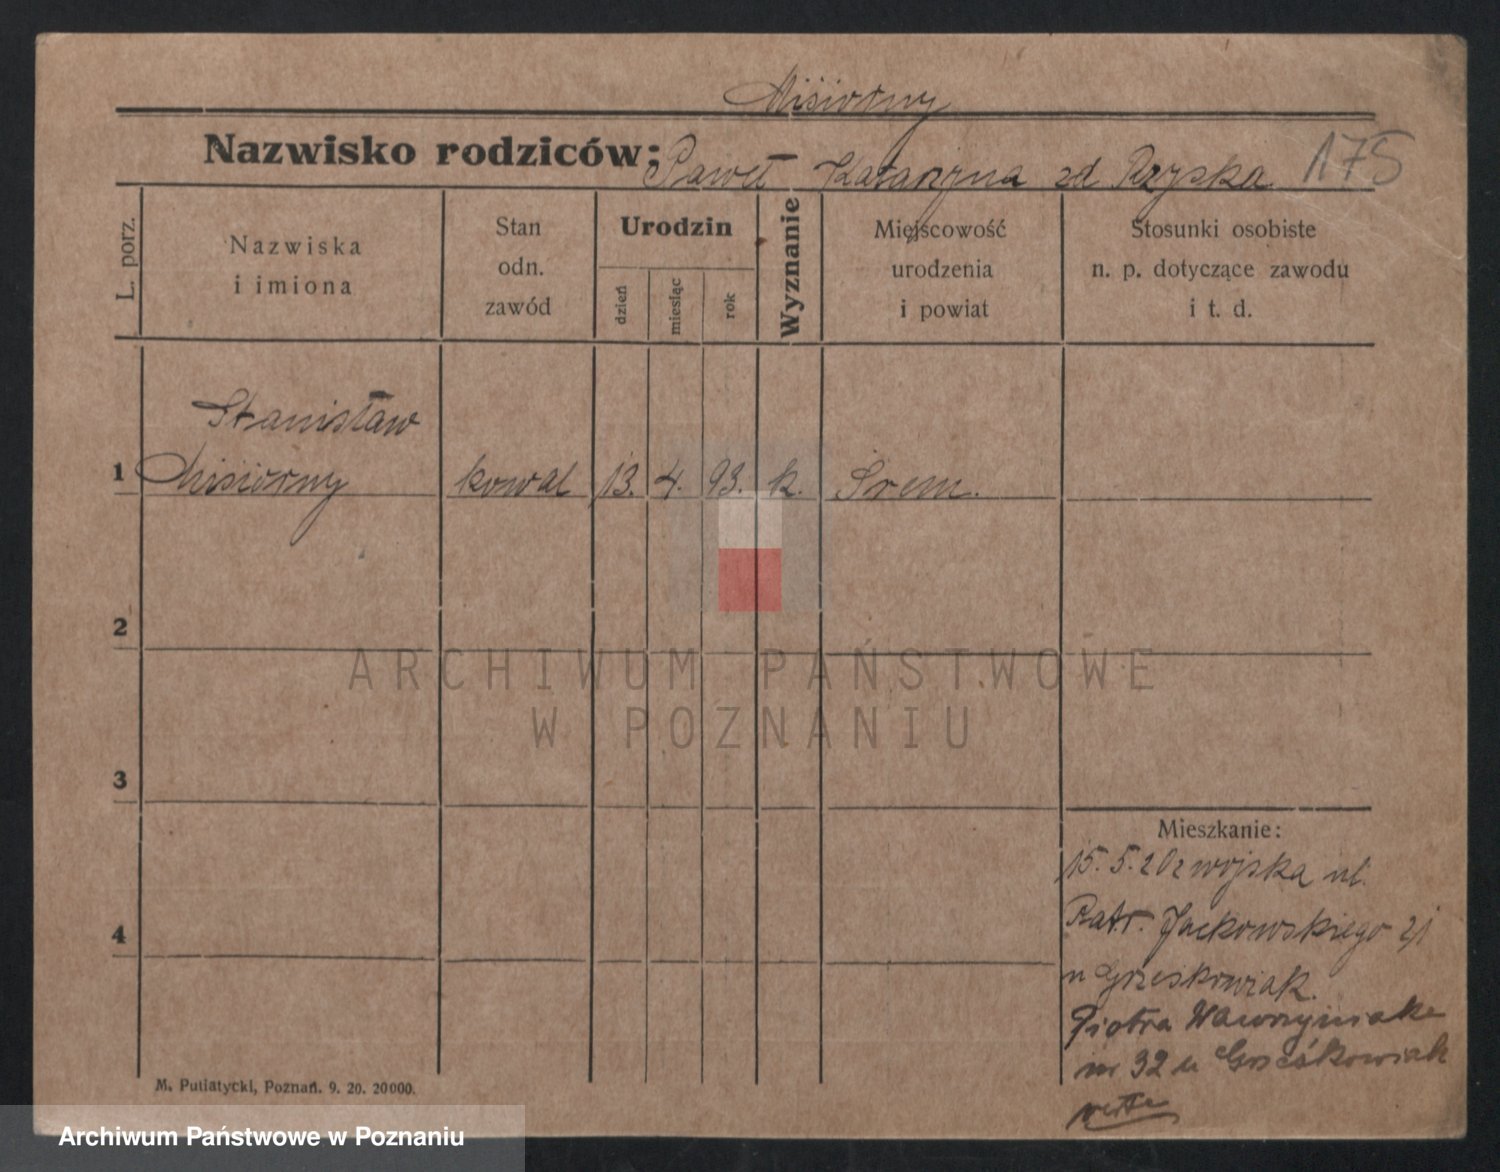 Misiorny
Nazwisko rodziców; Paweł Katarzyna zd Rzyska 175
L. porz.
Nazwiska
i imiona
Stan
odn.
zawód
Urodzin
dzień
miesiąc
rok
Wyznanie
Miejscowość
urodzenia
i powiat
Stosunki osobiste
n. p. dotyczące zawodu
i t. d.
Stanisław
1 Misiorny kowal 13. 4. 93. k. Śrem.
2
3
4
Mieszkanie:
15. 5. 20 z wojska ul.
Ratr. Jackowskiego 21
u Grześkowiak.
Piotra Wawrzyniaka
nr 32 u
verte
M. Putiatycki, Poznań. 9. 20. 20000.
ARCHIWUM PAŃSTWOWE
W POZNANIU
Archiwum Państwowe w Poznaniu